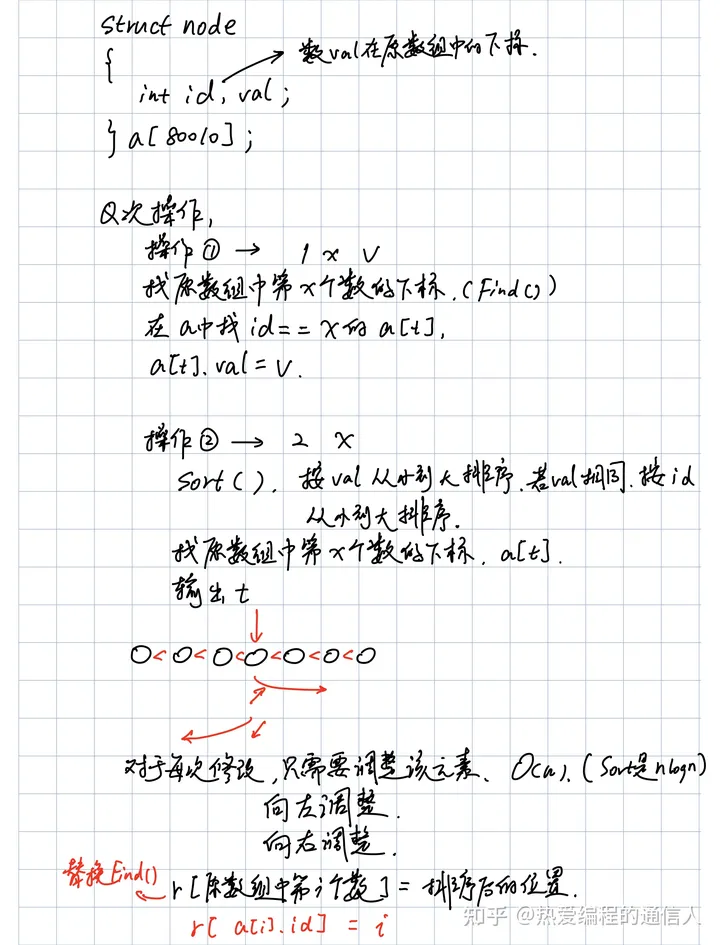 struct node
{
数val在原数组中的下标.
int id, val;
} a[80010];
Q次操作,
操作① → 1 x v
找原数组中第x个数的下标. (Find())
在a中找id==x的a[t],
a[t].val=v.
操作② → 2 x
Sort(). 按val从小到大排序.若val相同.按id
从小到大排序.
找原数组中第x个数的下标. a[t].
输出t
○<○<○<○<○<○<○
对于每次修改,只需要调整该元素、O(n). (Sort是nlogn)
向左调整.
向右调整.
替换Find()
r[原数组中第i个数] = 排序后的位置.
r[a[i].id] = i
知乎 @热爱编程的通信人